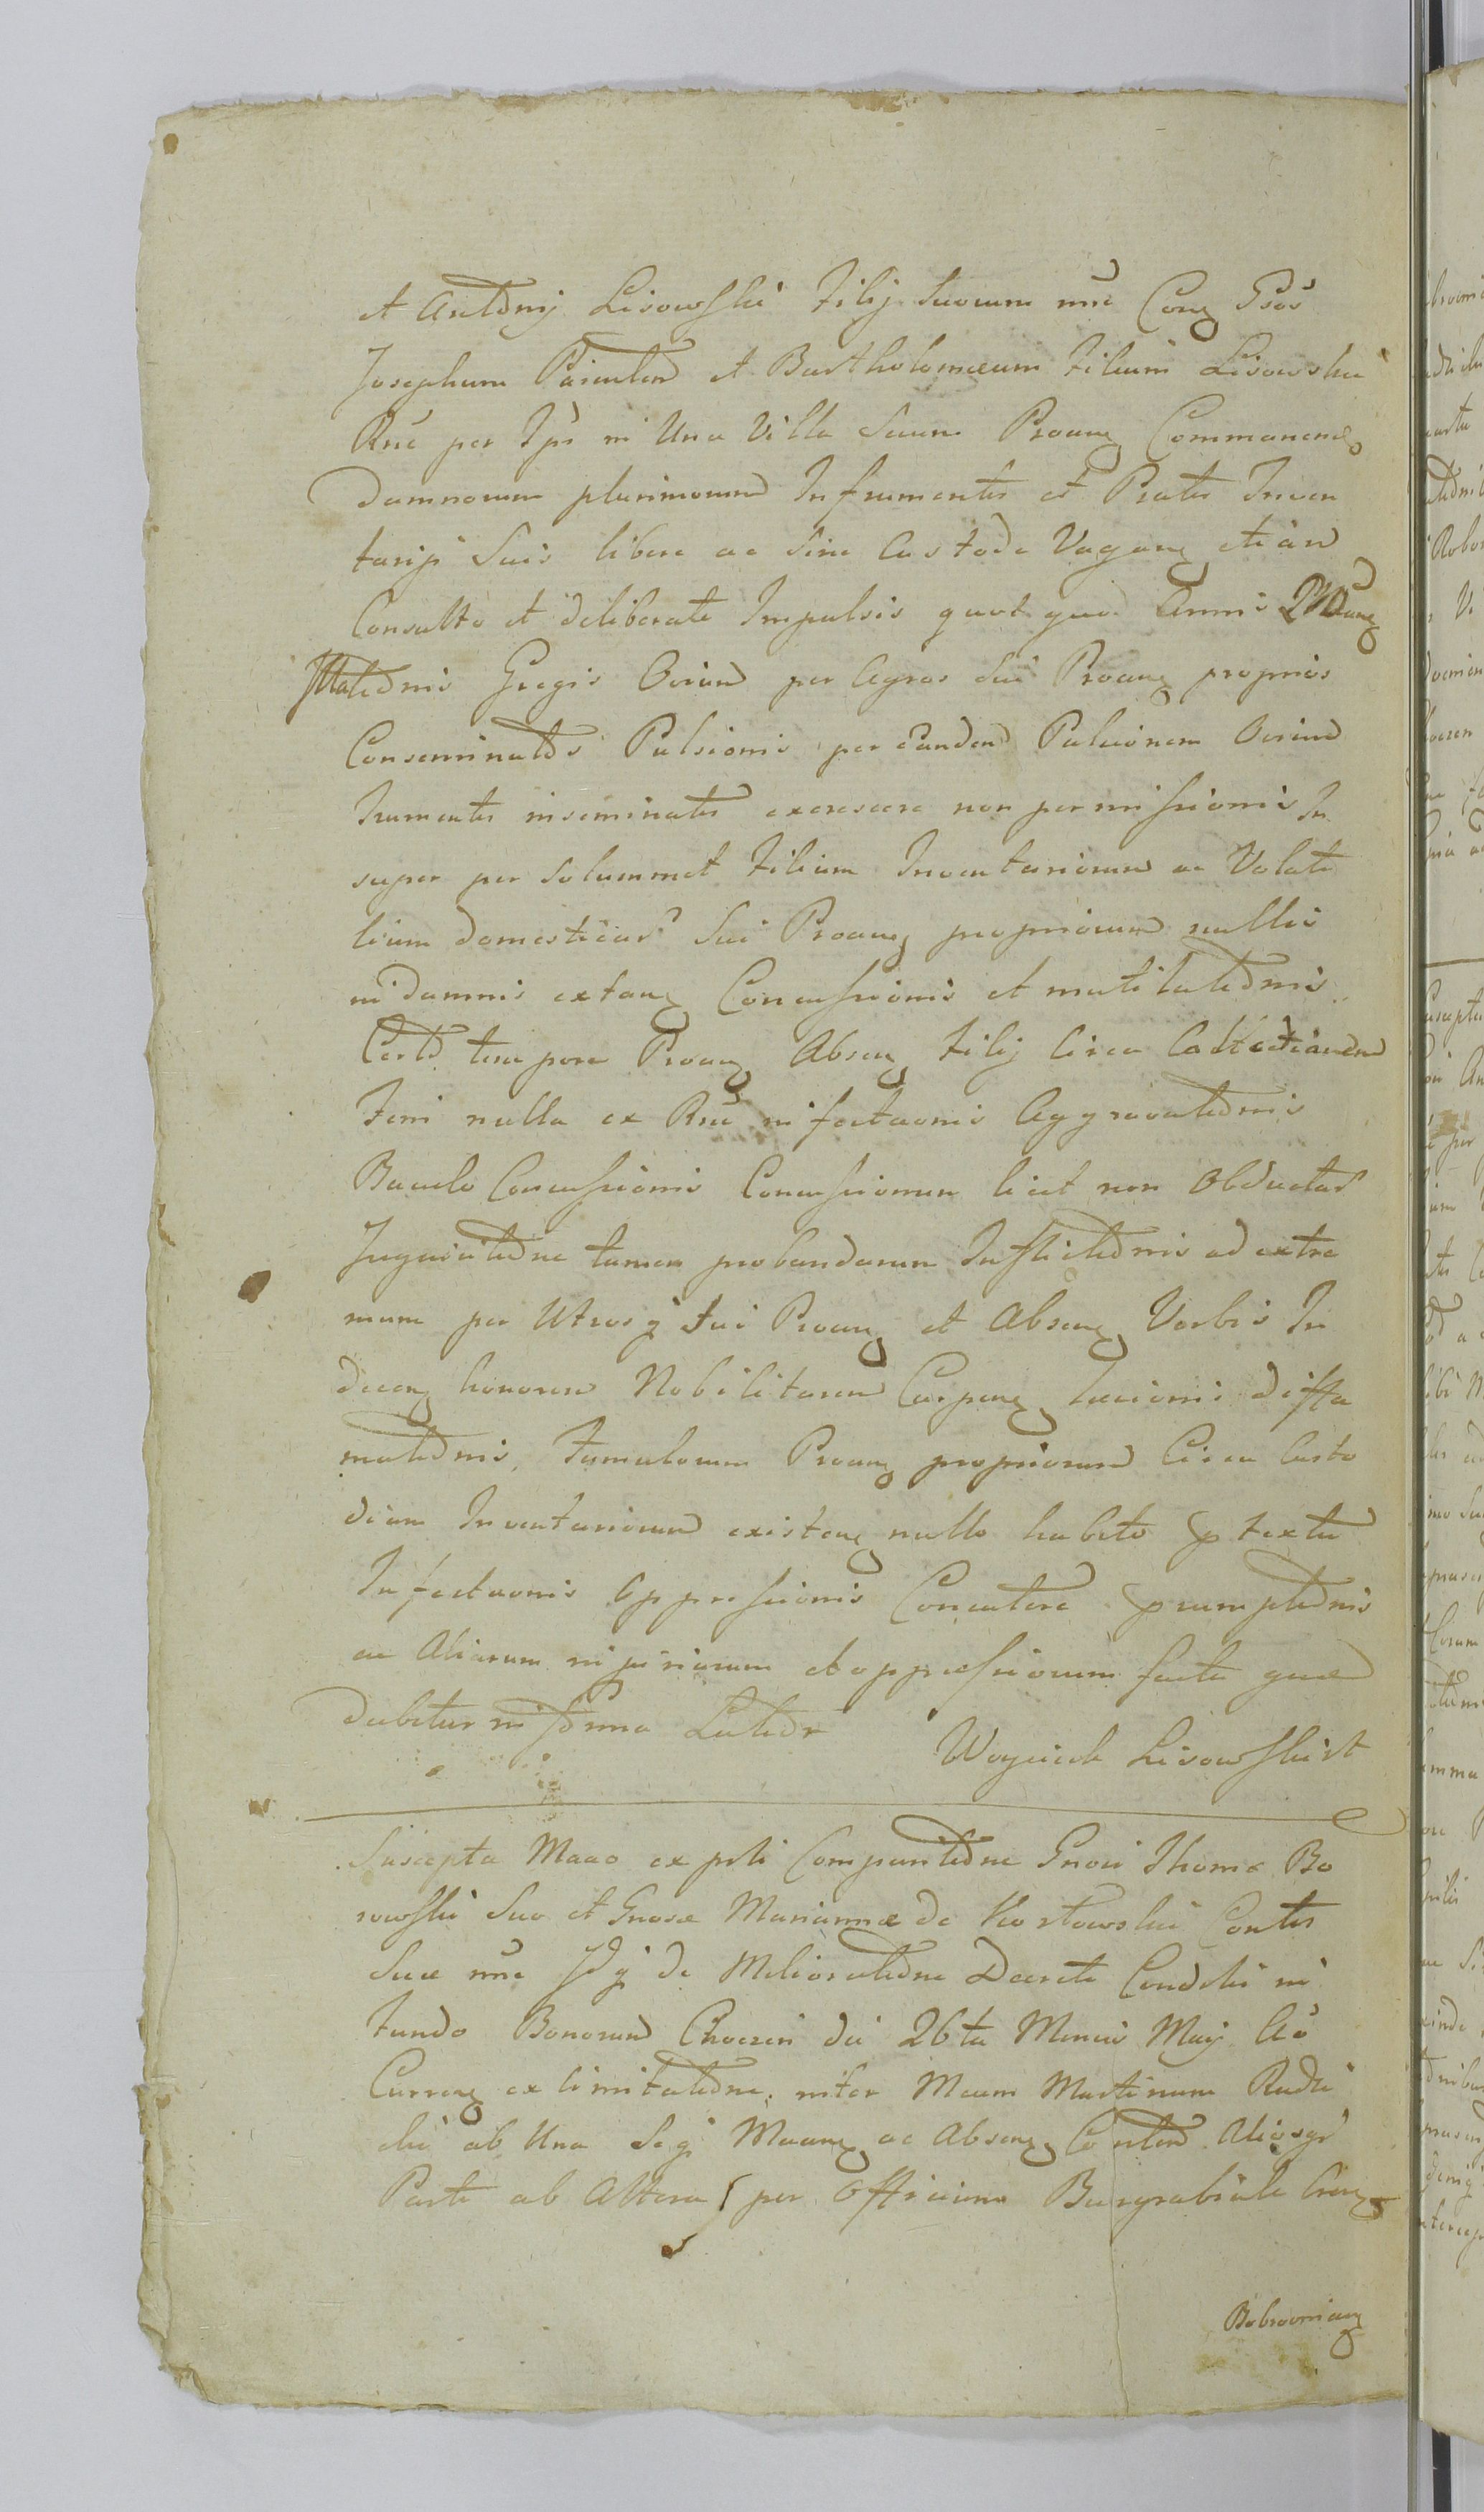 et Antonij Lisowskie Filij Suorum nne Cong Gsos
Josephum Parentem et Bartholomæum Filium Lisowskie
Rne per Ips in Una Villa Suum Proang Commanend
damnorum plurimorum In frumentis et Pratis Inven
tarijs Suis libere ac sine Custode Vagang etiam
Consulto et deliberate Impulsis quot quod Annis
Gregis Ovium per Agros Sui Proang proprios
Conseminatos Pulsionis per eandem Pulsionem Ovium
Frumentis inseminatis excrescere non permissionis In
super per solummet Filium Inventariorum ac Volati
lium domesticar Sui Proang propriorum nullis
in damnis extang Concussionis et mutilationis
Certo tempore Proang Absen Filij Circa
Feni nulla ex Rne in fectuonis Aggravationis
Baculo Concussionis Concussionum licet non Obductar
Inquisitione tamen probandarum Inflictionis ad extre
mum per Utrosq Sui Proang et Absen Verbis In
decen honorem Nobilitarem Carpeng lacionis diffa
mationis, Famulorum Proang propriorum Circa Custo
diam Inventariorum existeng nullo habito p textu
In fectuonis Oppressionis Concutere p sumptionis
ac Aliarum injuriarum et oppressionum facta quæ
dabitur in forma Latior
Woyciech Lisowski
Suscepta Maao ex psti Comparitione Gnosi Thomæ Bo
rowski Suo et Gnosæ Mariannæ de Kostowskie Contis
Suæ nne Idq de Melioratione Decreti Condski in
Fundo Bonorum Choczen die 26ta Mensis Maij Ao
Curren ex limitatione, inter Meum Martinum Rudni
cki ab Una Seq Maang ac Absen Contem Aliosqr
Parte ab Altera per Officium Burgrabiale
Bobrownian